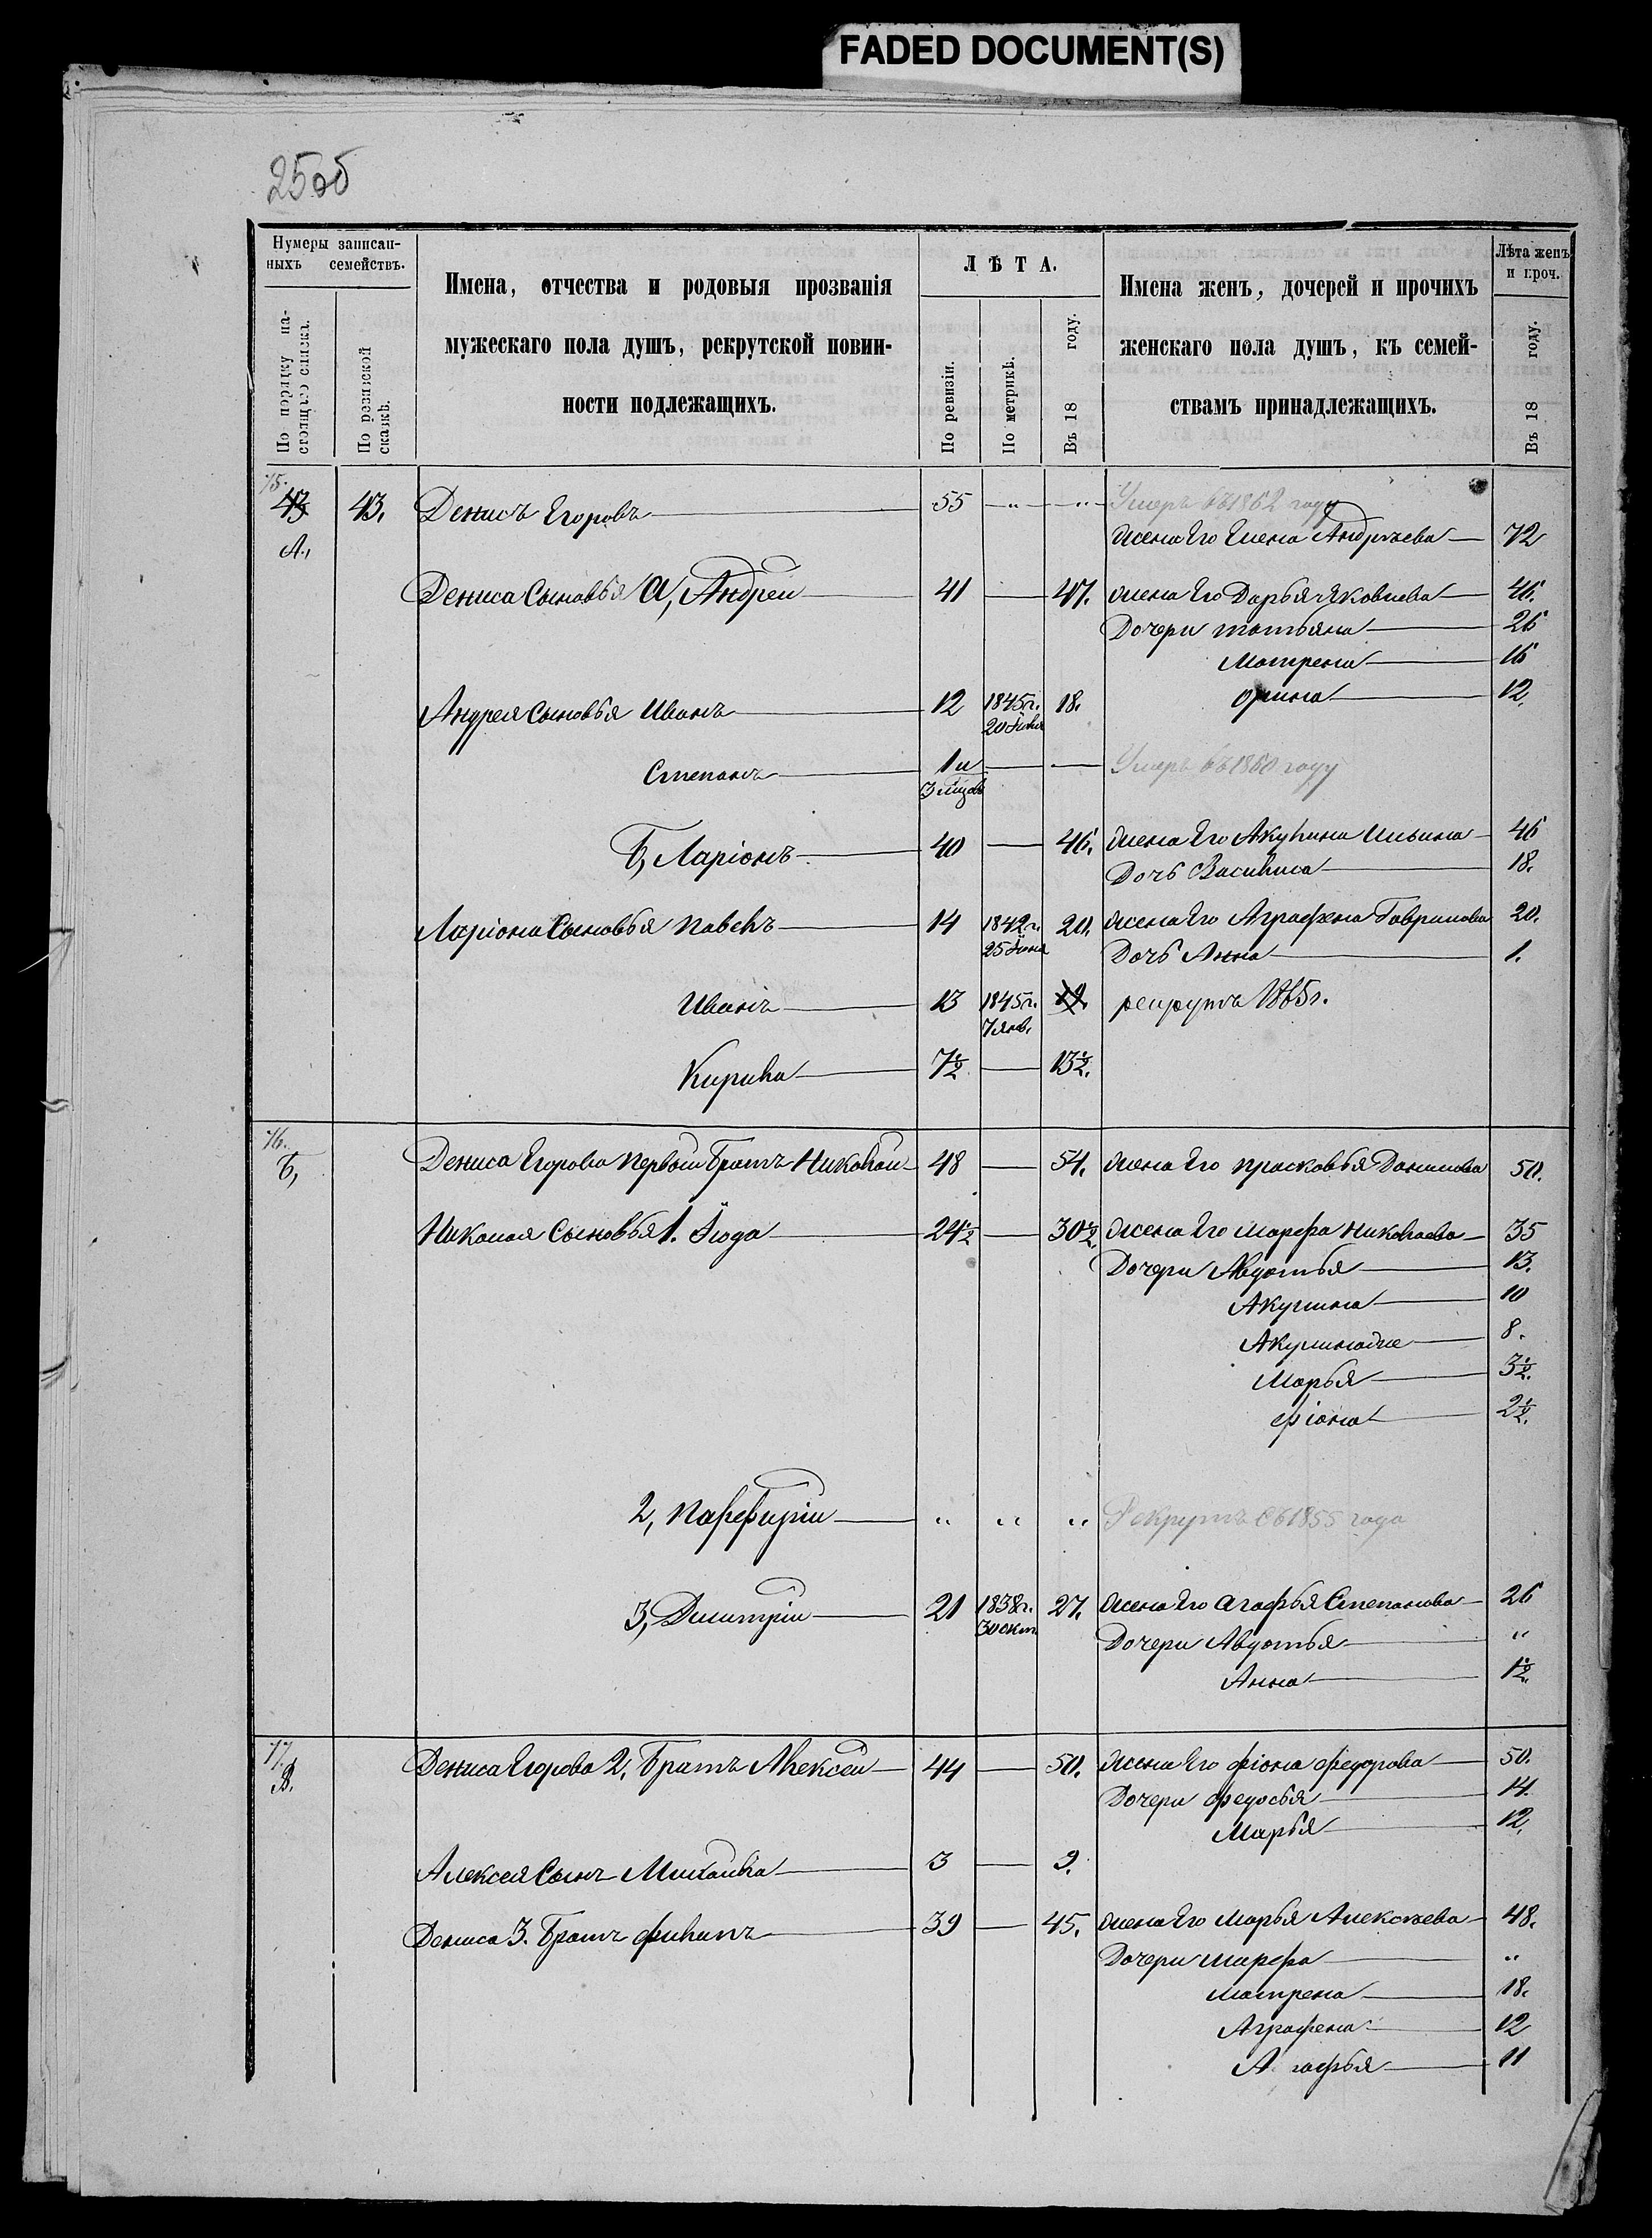 FADED DOCUMENT(S)
25об
Нумеры записан-
ныхъ семействъ.
По порядку на-
стоящаго списка.
По ревизской
сказкѣ.
Имена, отчества и родовыя прозванія
мужескаго пола душъ, рекрутской повин-
ности подлежащихъ.
ЛѢТА.
По ревизіи.
По метрикѣ.
Въ 18 году.
Имена женъ, дочерей и прочихъ
женскаго пола душъ, къ семей-
ствамъ принадлежащихъ.
Лѣта женъ
и проч.
Въ 18 году.
75.
43 43. Денисъ Егоровъ 55 " " Умеръ въ 1862 году
А., жена Его Елена Андрѣева 72
Дениса Сыновья а, Андреи 41 47. жена Его Дарья Яковлева 46.
Дочери татьяна 26
Матрена 16
Орина 12.
Андрея Сыновья Иванъ 12 1845г. 18.
20 Июня
Степанъ 1 и Умеръ въ 1860 году
3 мѣцов
Б, Ларіонъ 40 46. жена Его Акулина Ильина 46
Дочь Василиса 18.
Ларіона Сыновья павелъ 14 1842г. 20. жена Его Аграфена Гаврилова 20.
25 Июня Дочь Анна 1.
Иванъ 13 1845г. рекрутъ 1865г.
7 янв.
Кирила 7½ 13½.
76.
Б, Дениса Егорова первой братъ Николаи 48 54. жена Его прасковья Данилова 50.
Николая Сыновья 1. Июда 24½ 30½. жена Его марфа николаева 35
Дочери Авдотья 13.
Акулина 10
Акулинаже 8.
Марья 3½.
фіона 2½.
2, парфирiи " " " Рекрутъ съ 1855 года
3, Дмитрiи 21 1838г. 27. жена Его агафья Степанова 26
30 окт. Дочери Авдотья "
Анна 1½.
77.
В. Дениса Егорова 2. братъ Алексеи 44 50. жена Его фіона федорова 50.
Дочери федосья 14.
Марья 12.
Алексея Сынъ Михаила 3 9.
Дениса 3. братъ филипъ 39 45. жена Его марья Алексѣева 48.
Дочери марфа "
матрена 18.
Аграфена 12
Агафья 11